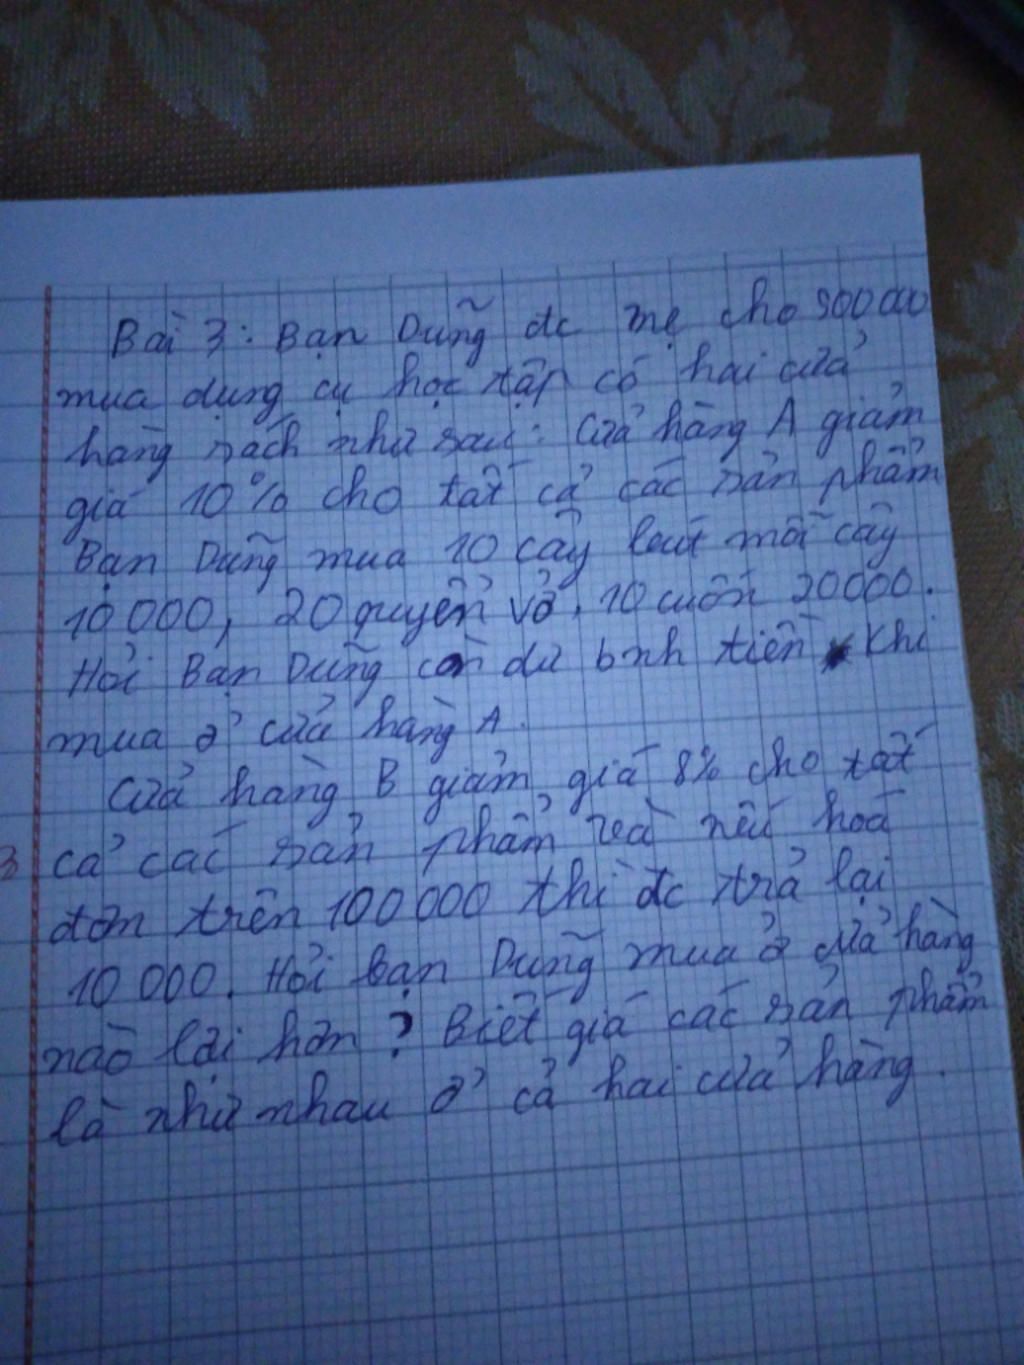 Bài 3: Bạn Dũng đc mẹ cho 900 000
mua dụng cụ học tập có hai cửa
hàng sách như sau: Cửa hàng A giảm
giá 10% cho tất cả các sản phẩm
Bạn Dũng mua 10 cây bút mỗi cây
10 000, 20 quyển vở, 10 cuốn 20 000.
Hỏi Bạn Dũng còn dư bnh tiền khi
mua ở cửa hàng A.
Cửa hàng B giảm giá 8% cho tất
cả các sản phẩm và nếu hoá
đơn trên 100 000 thì đc trả lại
10 000. Hỏi bạn Dũng mua ở cửa hàng
nào lợi hơn? Biết giá các sản phẩm
là như nhau ở cả hai cửa hàng.